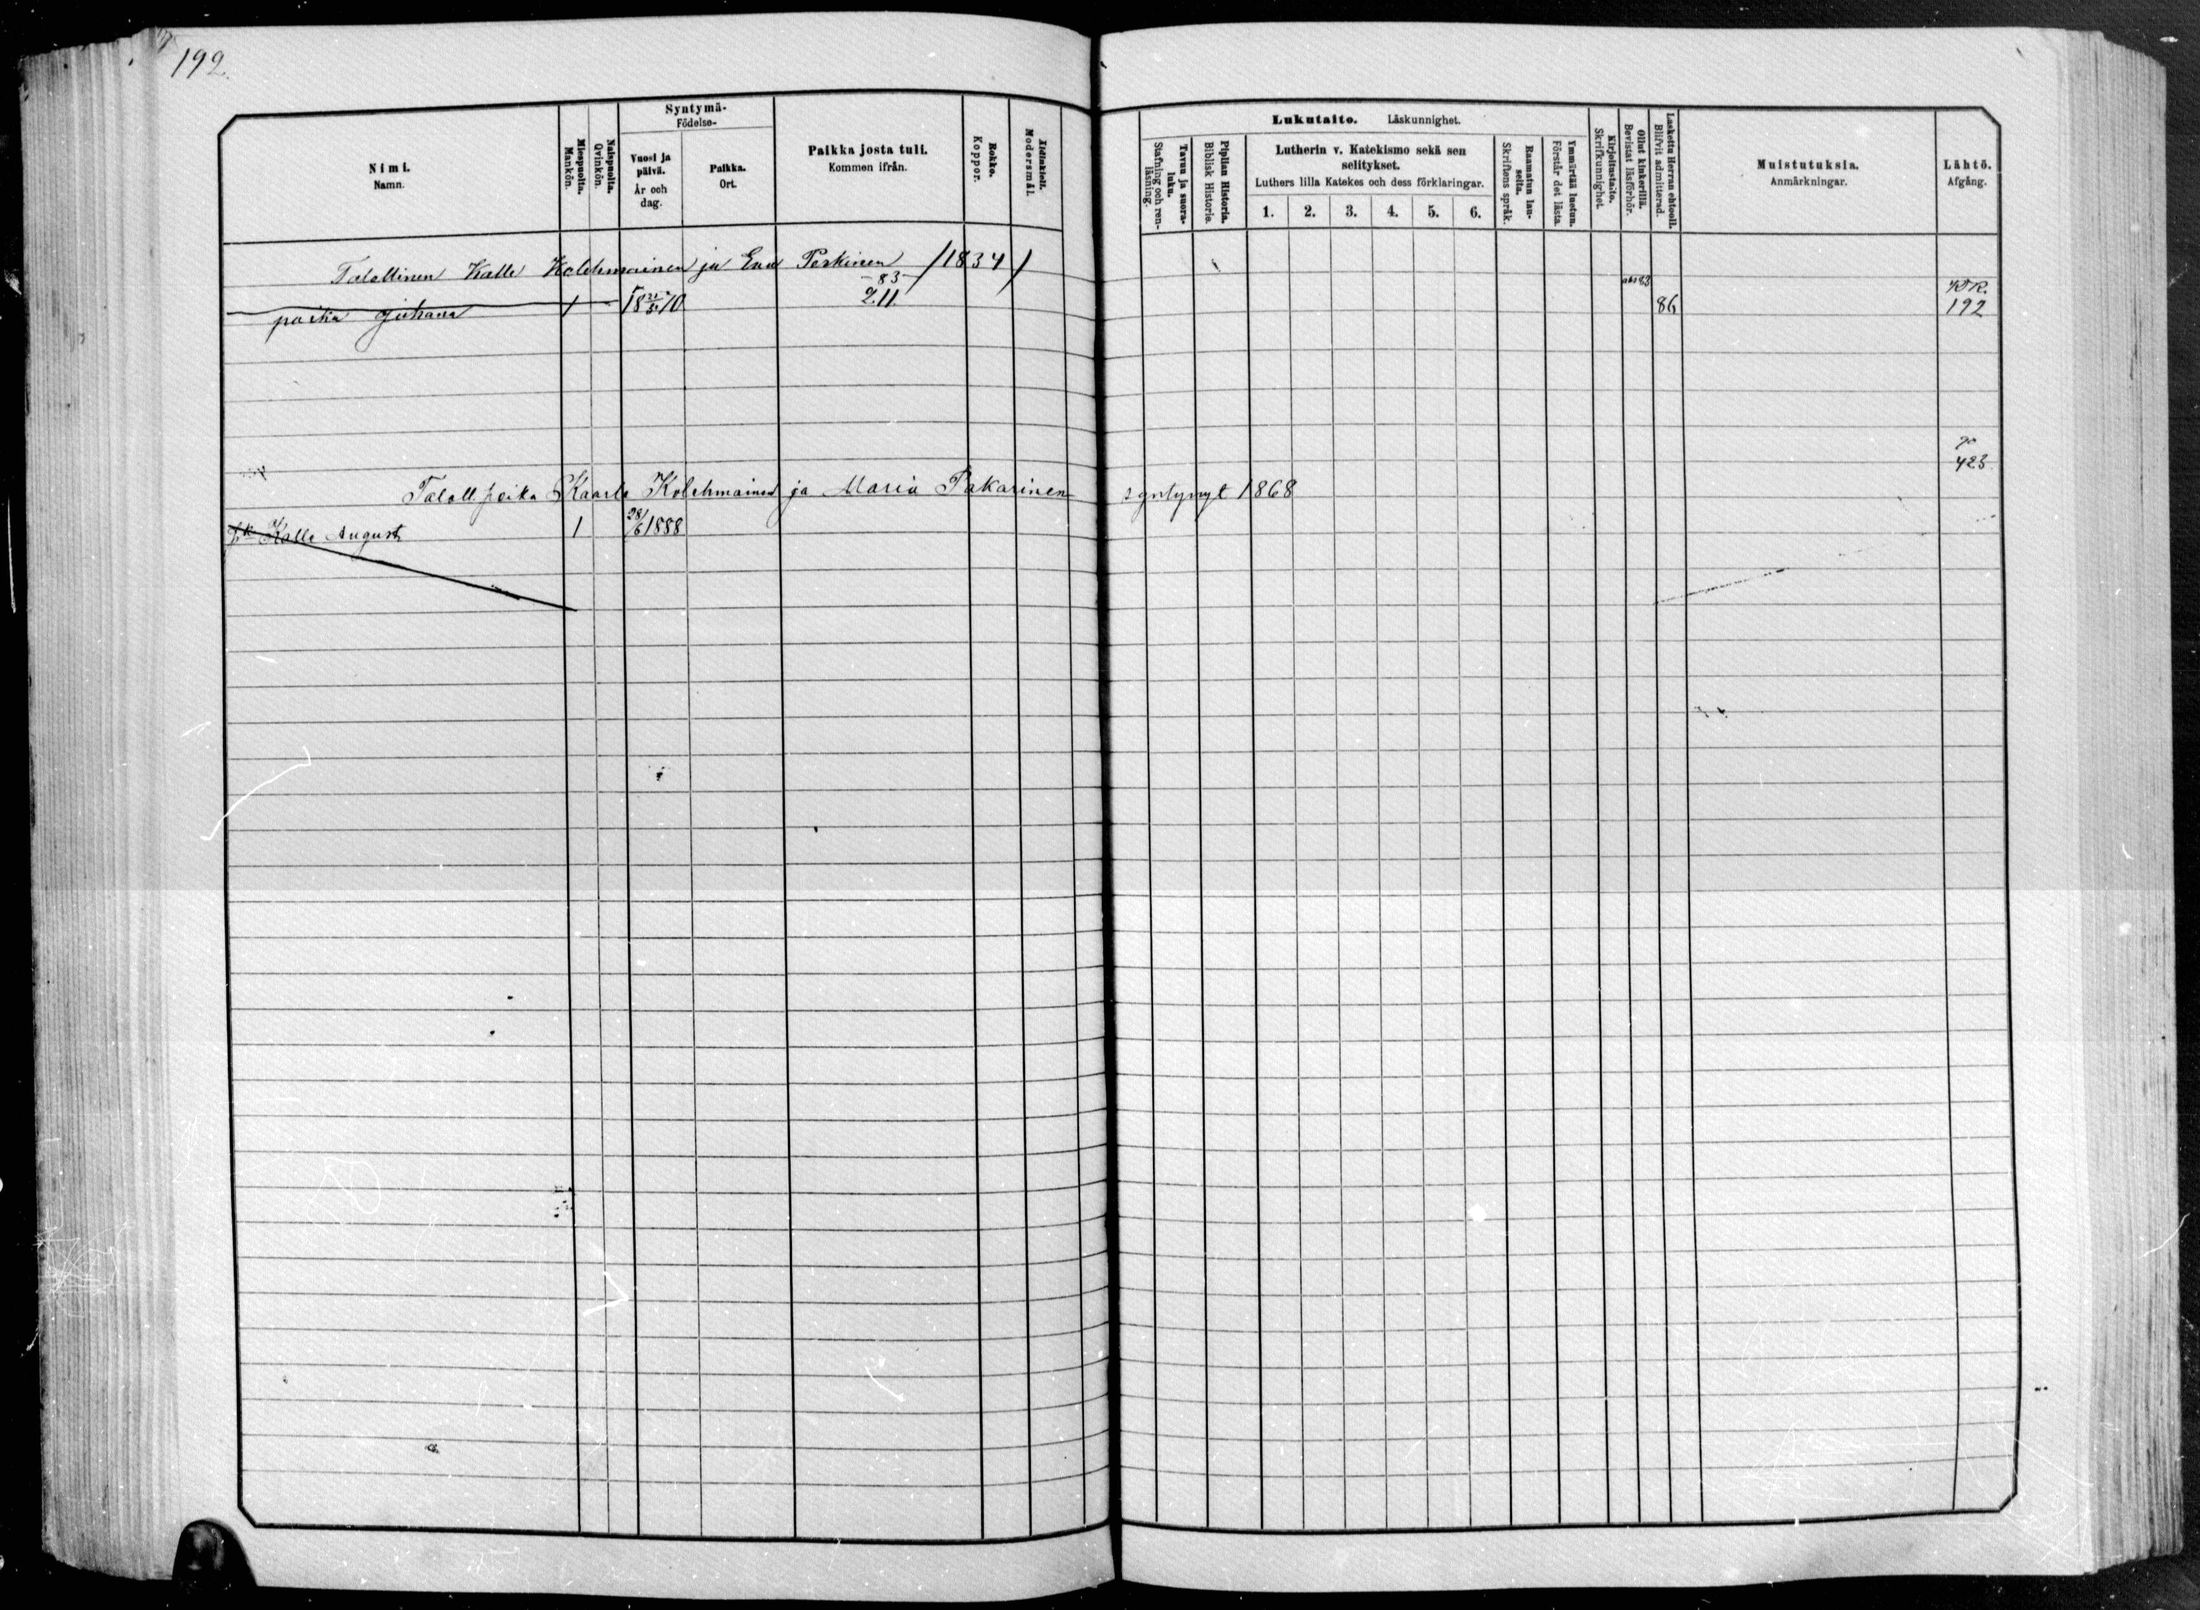 192
Nimi.
Namn.
Miespuolta.
Mankön.
Naispuolta.
Qvinkön.
Syntymä-
Födelse-
Vuosi ja
päivä.
År och
dag.
Paikka.
Ort.
Paikka josta tuli.
Kommen ifrån.
Rokko.
Koppor.
Äidinkieli.
Modersmål.
Lukutaito. Läskunnighet.
Tavuu ja suora-
luku.
Stafning och ren-
läsning.
Piplian Historia.
Biblisk Historie.
Lutherin v. Katekismo sekä sen
selitykset.
Luthers lilla Katekes och dess förklaringar.
1. 2. 3. 4. 5. 6.
Raamatun lau-
seita.
Skriftens språk.
Ymmärtää luetun.
Förstår det lästa.
Kirjoitustaito.
Skrifkunnighet.
Ollut kinkerillä.
Bevistat läsförhör.
Laskettu Herran ehtooll.
Blifvit admitterad.
Muistutuksia.
Anmärkningar.
Lähtö.
Afgång.
Talollinen Kalle Kolehmainen ja Eva Peskinen /1834/
poika Juhana 1 18 21/5 70 83 211. 86 192
423
Taloll. poika Kaarle Kolehmainen ja Maria Pakarinen syntynyt 1868
pk Kalle August 1 28/6 1888